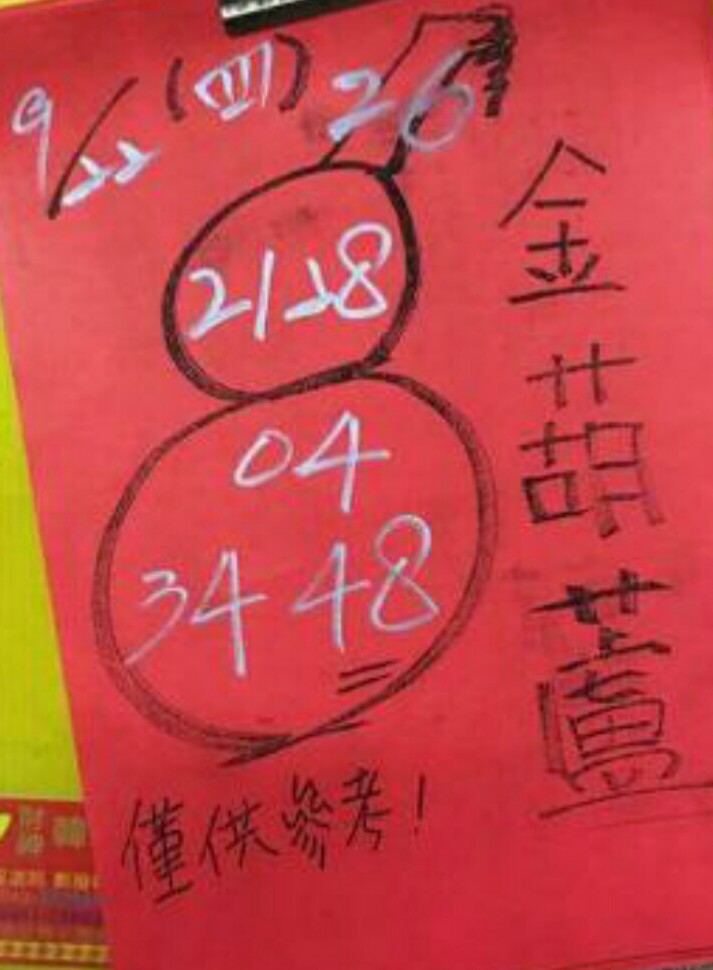 9/22 (四) 26
21 28
04
34 48
金葫蘆
僅供參考!